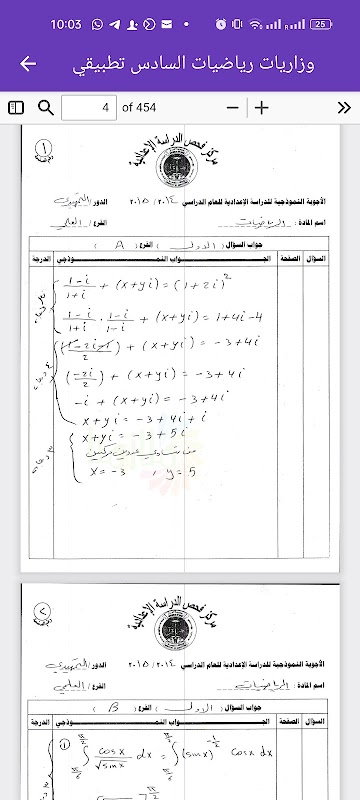 10:03
25
وزاريات رياضيات السادس تطبيقي
4 of 454
١
مركز فحص الدراسة الإعدادية
الأجوبة النموذجية للدراسة الإعدادية للعام الدراسي ٢٠١٤ / ٢٠١٥ الدور / التمهيدي
اسم المادة : الرياضيات الفرع / العلمي
جواب السؤال ( الاول ) الفرع ( A )
السؤال الصفحة الجـــواب النمـــوذجي الدرجة
(1-i)/(1+i) + (x+yi) = (1+2i)²
(1-i)/(1+i) · (1-i)/(1-i) + (x+yi) = 1+4i-4
(1-2i-1)/2 + (x+yi) = -3+4i
(-2i/2) + (x+yi) = -3+4i
-i + (x+yi) = -3+4i
x+yi = -3+4i+i
x+yi = -3+5i
من تساوي عددين مركبين
x = -3 , y = 5
٢
مركز فحص الدراسة الإعدادية
الأجوبة النموذجية للدراسة الإعدادية للعام الدراسي ٢٠١٤ / ٢٠١٥ الدور / التمهيدي
اسم المادة : الرياضيات الفرع / العلمي
جواب السؤال ( الاول ) الفرع ( B )
السؤال الصفحة الجـــواب النمـــوذجي الدرجة
① ∫_{π/6}^{π/2} cosx/√sinx dx = ∫_{π/6}^{π/2} (sinx)^{-1/2} cosx dx